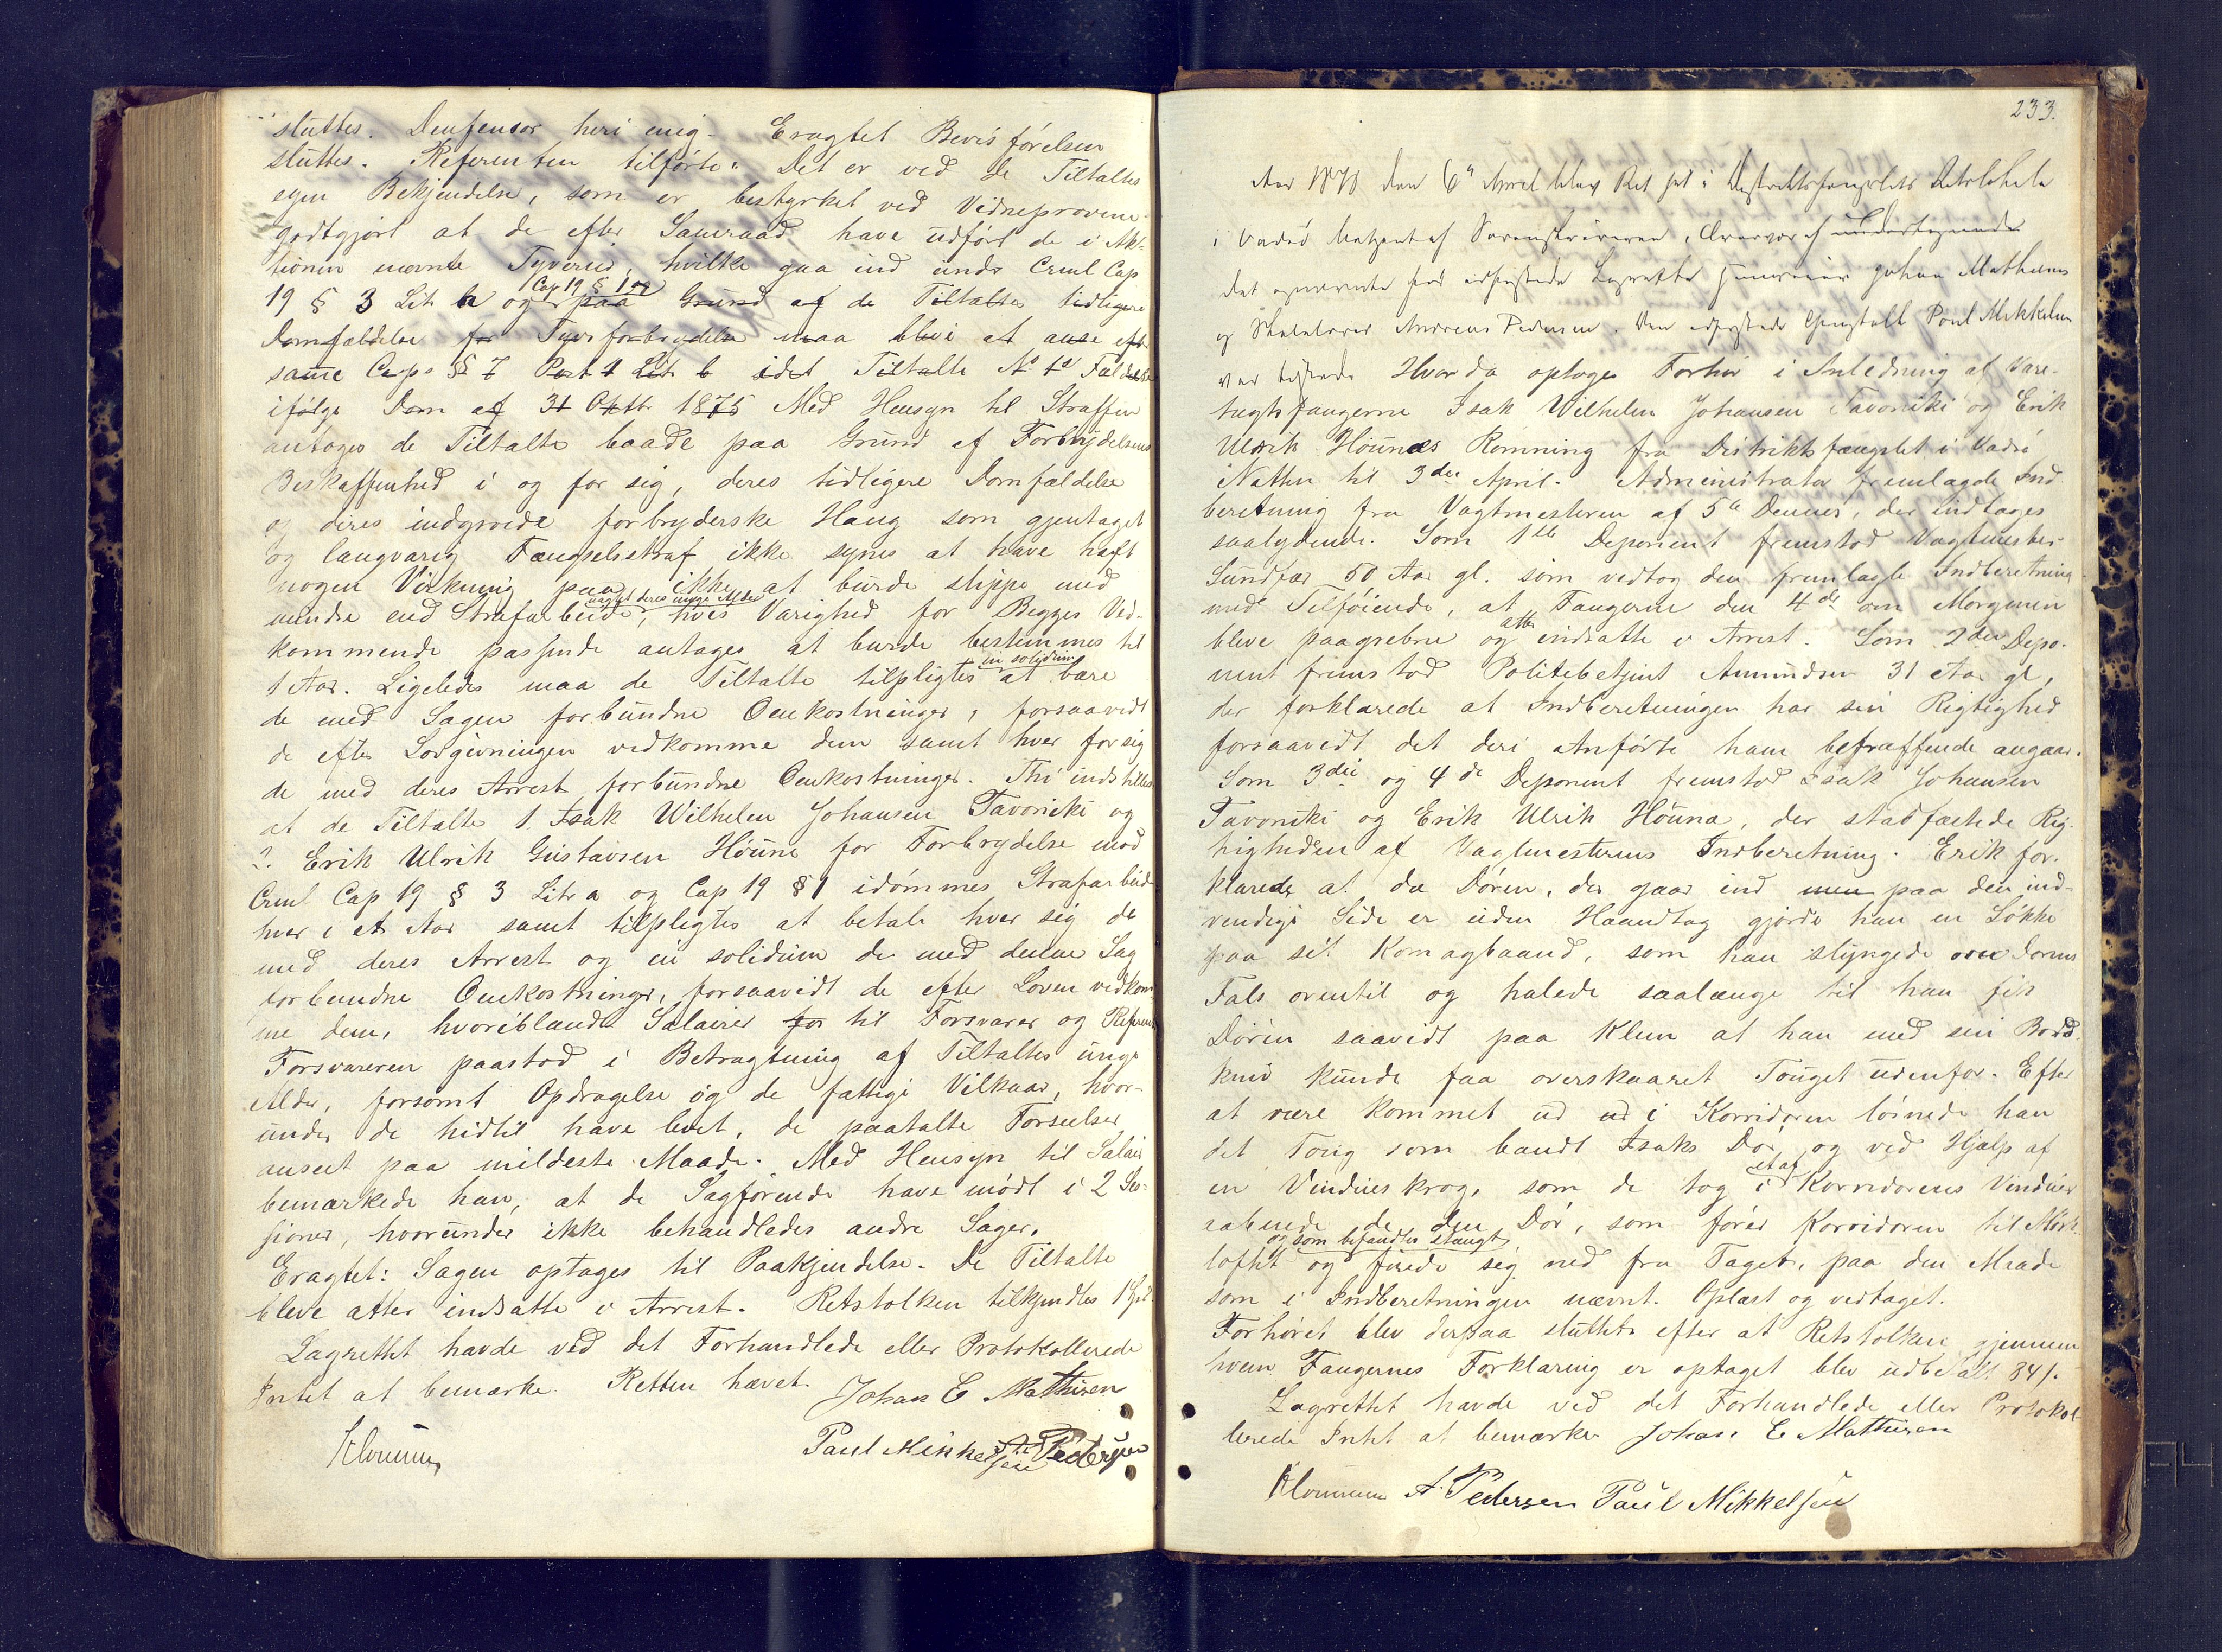 sluttes. Deufensor heri enig. Eragtet Bevisførelsen
sluttes. Referenten tilførte: Det er ved de Tiltaltes
egen Bekjendelse, som er bestyrket ved Vidneprovene
godtgjort at de efter Samraad have udført de i Ak-
tionen nævnte Tyverier, hvilke gaa ind under Crml Cap
19 § 3 Lit a og Cap 19 § 1 og paa Grund af de Tiltaltes tidligere
Domfældelse for Tyvsforbrydelse maa blive at anse efter
samme Caps § 7 Post 1 Lit b idet Tiltalte No 1
ifølge Dom af 31 Oktbr 1875 Med Hensyn til Straffen
antages de Tiltalte baade paa Grund af Forbrydelsens
Beskaffenhed i og for sig, deres tidligere Domfældelse
og deres indgroede forbryderske Hang som gjentaget
og langvarig Fængselsstraf ikke synes at have havt
nogen Virkning paa ikke at burde slippe med
mindre end Strafarbeide, uagtet deres unge Alder hvis Varighed for Begges Ved-
kommende passende antages at burde bestemmes til
1 Aar. Ligeledes maa de Tiltalte tilpligtes in solidum at bære
de med Sagen forbundne Omkostninger, forsaavidt
de efter Lovgivningen vedkomme dem samt hver for sig
de med deres Arrest forbundne Omkostninger. Thi indstilles
at de Tiltalte 1. Isak Wilhelm Johansen Tavoniki og
2. Erik Ulrik Gustavsen Høuna for Forbrydelse mod
Crml Cap 19 § 3 Litr a og Cap 19 § 1 idømmes Strafarbeide
hver i et Aar samt tilpligtes at betale hver sig de
med deres Arrest og in solidum de med denne Sag
forbundne Omkostninger, forsaavidt de efter Loven vedkom-
me dem, hvoriblandt Salairer for til Forsvarer og Referent
Forsvareren paastod i Betragtning af Tiltaltes unge
Alder, forsømt Opdragelse og de fattige Vilkaar, hvor-
under de hidtil have levet, de paatalte Forseelser
anseet paa mildeste Maade. Med Hensyn til Salair
bemærkede han, at de Sagførende have mødt i 2 Ses-
sioner, hvorunder ikke behandledes andre Sager.
Eragtet: Sagen optages til Paakjendelse. De Tiltalte
bleve atter indsatte i Arrest. Retstolken tilkjendtes 1 Spd.
Lagrettet havde ved det Forhandlede eller Protokollerede
Intet at bemærke. Retten hævet. Johan E Mathisen
Paul Mikkelsen A Pedersen
233.
Aar 1876 den 6te April blev Ret sat i Distriktsfængslets Retslokale
i Vadsø betjent af Sorenskriveren, Overvær af undertegnede
det opnævnte før edfæstede Lagrette Johan Mathisen
og Andreas Pedersen. Den edfæstede Paul Mikkelsen
var tilstede Hvorda optoges Forhør i Anledning af Vare-
tægtsfangerne Isak Wilhelm Johansen Tavoniki og Erik
Ulrik Høunas Rømning fra Distriktsfængslet i Vadsø
Natten til 3die April. Administrator fremlagde Ind-
beretning fra Vagtmesteren af 5te Dennes, der indtages
saalydende. Som 1ste Deponent fremstod Vagtmester
Sundfær 50 Aar gl. som vedtog den fremlagte Indberetning
med Tilføiende, at Fangerne den 4de om Morgenen
bleve paagrebne og atter indsatte i Arrest. Som 2den Depo-
nent fremstod Politibetjent Amundsen 31 Aar gl,
der forklarede at Indberetningen har sin Rigtighed
forsaavidt det deri Anførte ham betræffende angaar.
Som 3die og 4de Deponent fremstod Isak Johansen
Tavoniki og Erik Ulrik Høuna, der stadfæstede Rig-
tigheden af Vagtmesterens Indberetning. Erik for-
klarede at da Døren, der gaar ind men paa den ind-
vendige Side er uden Haandtag gjorde han en Løkke
paa sit Komagbaand, som han slyngede over Dørens
Fals oventil og halede saalænge til han fik
Døren saavidt paa Klem at han med sin Bord-
kniv kunde faa overskaaret Touget udenfor. Efter
at være kommet ud ud i Korridoren løsnede han
det Toug som bandt Isaks Dør, og ved Hjælp af
en Vindueskrog, som de tog i et af Korridorens Vinduer
aabnede de den Dør, som fører Korridoren til Mørk-
loftet og som befandtes stængt og firede sig ned fra Taget, paa den Maade
som i Indberetningen nævnt. Oplæst og vedtaget.
Forhøret blev derpaa sluttet efter at Retstolken gjennem
hvem Fangernes Forklaring er optaget blev udbetalt 84 s.
Lagrettet havde ved det Forhandlede eller Protokol-
lerede Intet at bemærke Johan E Mathisen
A. Pedersen Paul Mikkelsen